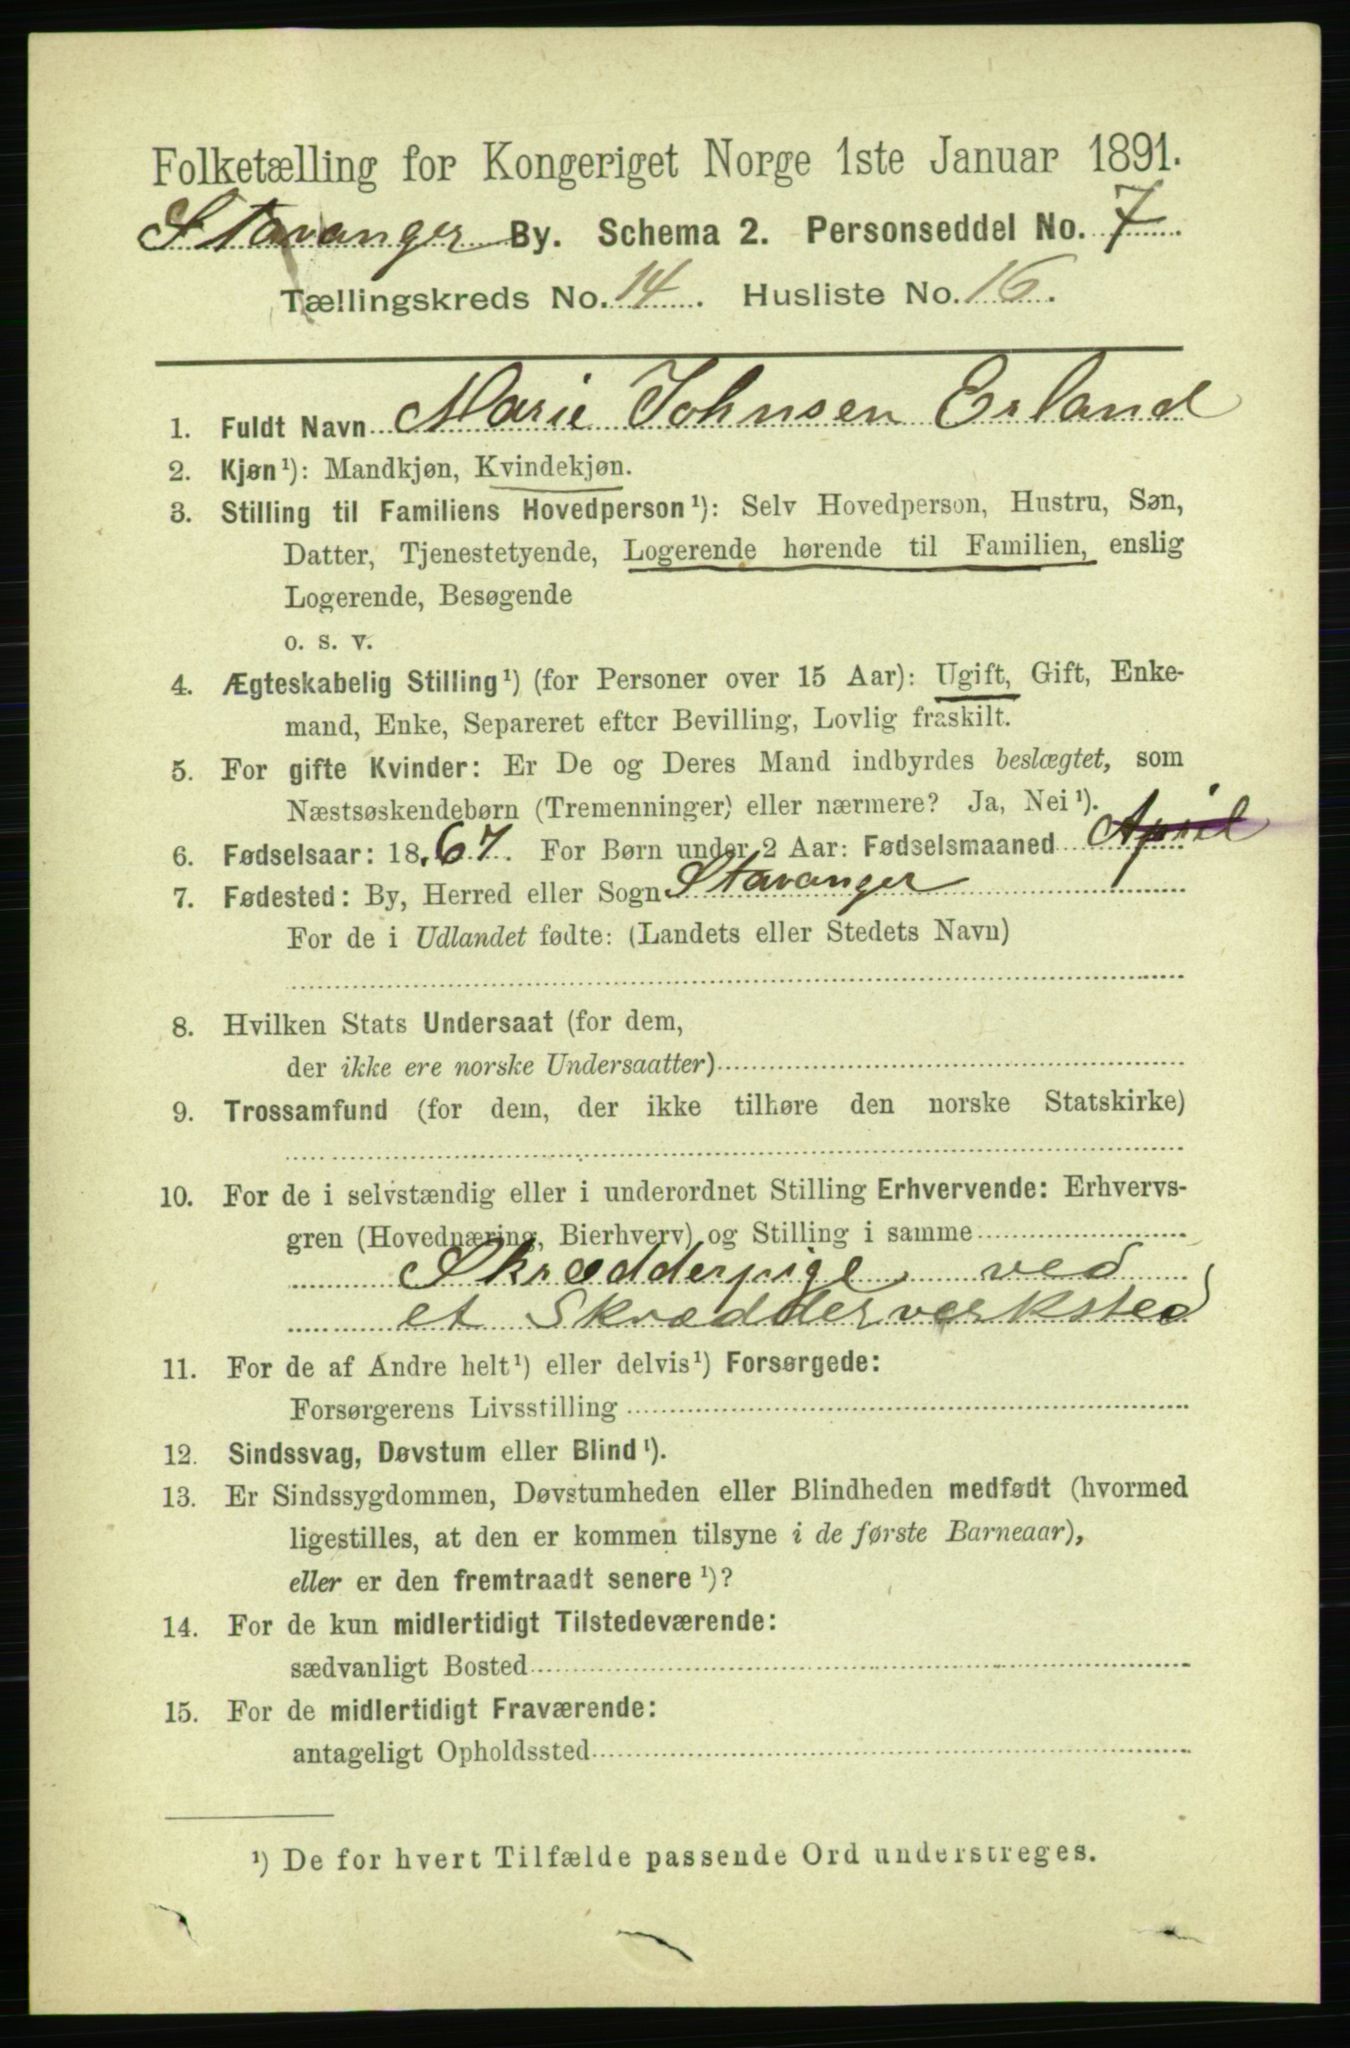 Folketælling for Kongeriget Norge 1ste Januar 1891.
Stavanger By. Schema 2. Personseddel No. 7
Tællingskreds No. 14. Husliste No. 16.
1. Fuldt Navn Marie Johnsen Erland
2. Kjøn¹): Mandkjøn, Kvindekjøn.
3. Stilling til Familiens Hovedperson¹): Selv Hovedperson, Hustru, Søn,
Datter, Tjenestetyende, Logerende hørende til Familien, enslig
Logerende, Besøgende
o. s. v.
4. Ægteskabelig Stilling¹) (for Personer over 15 Aar): Ugift, Gift, Enke-
mand, Enke, Separeret efter Bevilling, Lovlig fraskilt.
5. For gifte Kvinder: Er De og Deres Mand indbyrdes beslægtet, som
Næstsøskendebørn (Tremenninger) eller nærmere? Ja, Nei¹).
6. Fødselsaar: 1867. For Børn under 2 Aar: Fødselsmaaned April
7. Fødested: By, Herred eller Sogn Stavanger
For de i Udlandet fødte: (Landets eller Stedets Navn)
8. Hvilken Stats Undersaat (for dem,
der ikke ere norske Undersaatter)
9. Trossamfund (for dem, der ikke tilhøre den norske Statskirke)
10. For de i selvstændig eller i underordnet Stilling Erhvervende: Erhvervs-
gren (Hovednæring, Bierhverv) og Stilling i samme
Skrædderpige ved
et Skrædderverksted
11. For de af Andre helt¹) eller delvis¹) Forsørgede:
Forsørgerens Livsstilling
12. Sindssvag, Døvstum eller Blind¹).
13. Er Sindssygdommen, Døvstumheden eller Blindheden medfødt (hvormed
ligestilles, at den er kommen tilsyne i de første Barneaar),
eller er den fremtraadt senere¹)?
14. For de kun midlertidigt Tilstedeværende:
sædvanligt Bosted
15. For de midlertidigt Fraværende:
antageligt Opholdssted
¹) De for hvert Tilfælde passende Ord understreges.